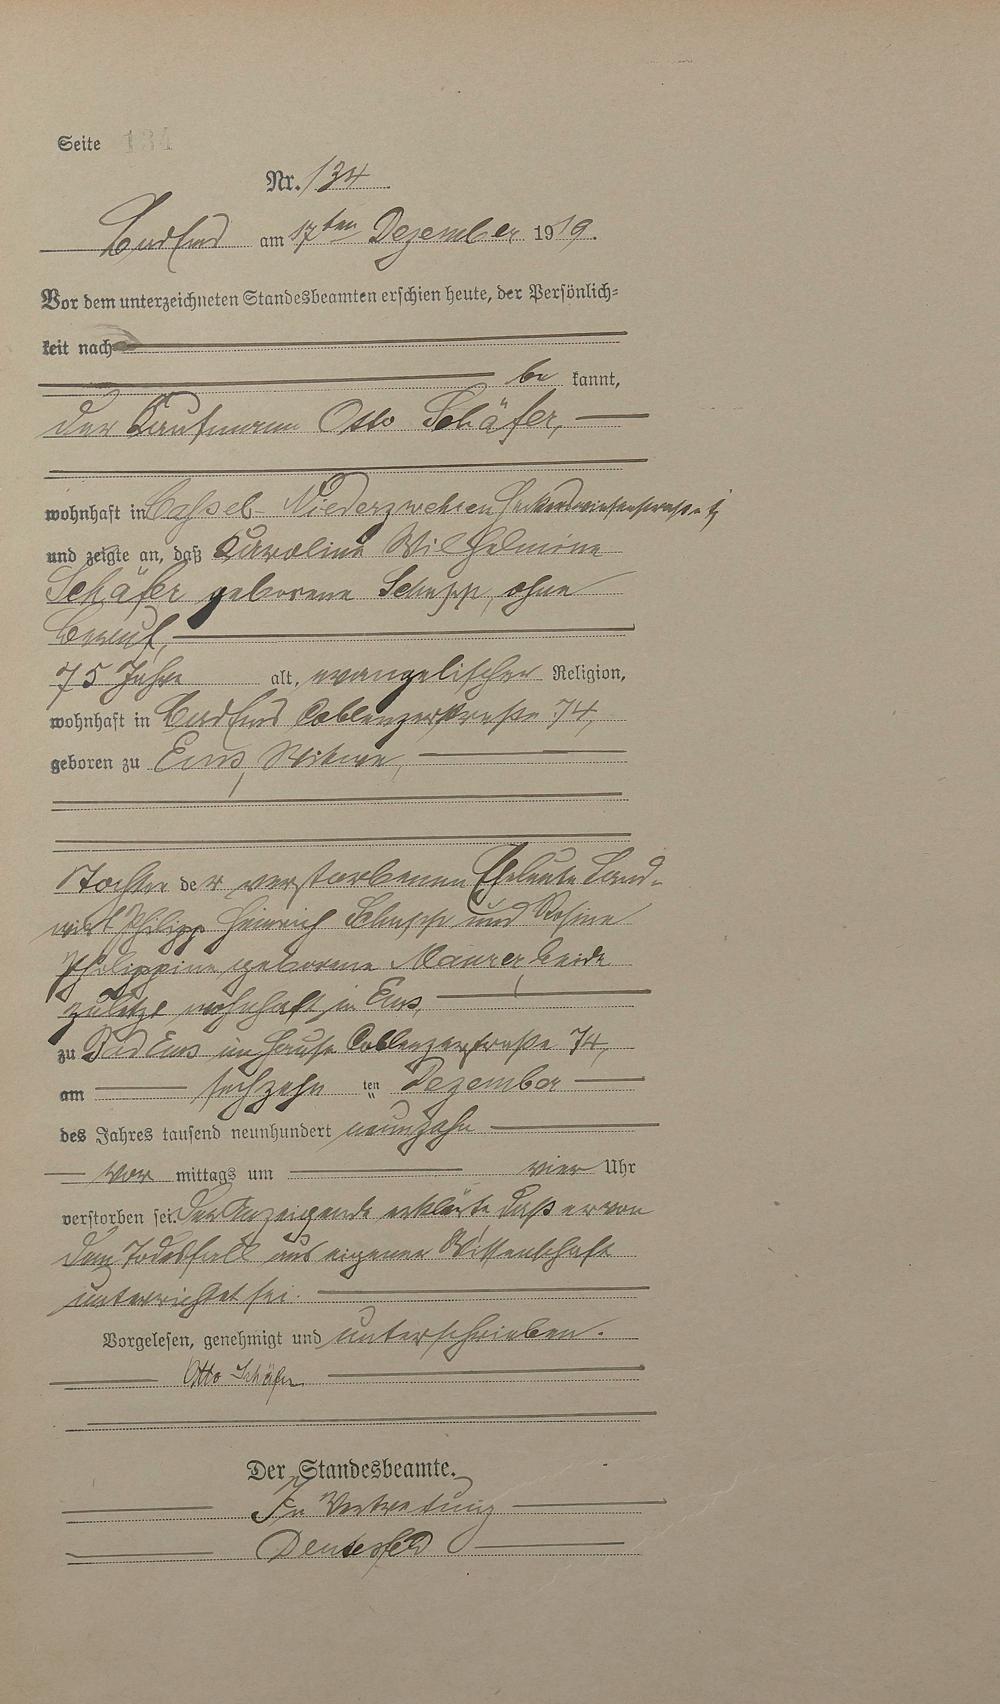 Seite 134
Nr. 134
Bad Ems am 17ten Dezember 1919.
Vor dem unterzeichneten Standesbeamten erschien heute, der Persönlich=
keit nach
be kannt,
der Kaufmann Otto Schäfer,
wohnhaft in Cassel-Niederzwehren
und zeigte an, daß Karoline Wilhelmine
Schäfer geborene Schupp, ohne
Beruf,
75 Jahre alt, evangelischer Religion,
wohnhaft in Bad Ems Coblenzerstraße 74,
geboren zu Ems, Witwe,
Tochter der verstorbenen Eheleute Land-
wirt Philipp Heinrich Schupp und Rosine
Philippine geborene Maurer, beide
zuletzt wohnhaft in Ems,
zu Bad Ems im Hause Coblenzerstraße 74,
am sechzehn ten Dezember
des Jahres tausend neunhundert neunzehn
vor mittags um vier Uhr
verstorben sei. Der Anzeigende erklärte, daß er von
dem Todesfall aus eigener Wissenschaft
unterrichtet sei.
Vorgelesen, genehmigt und unterschrieben.
Otto Schäfer
Der Standesbeamte.
In Vertretung